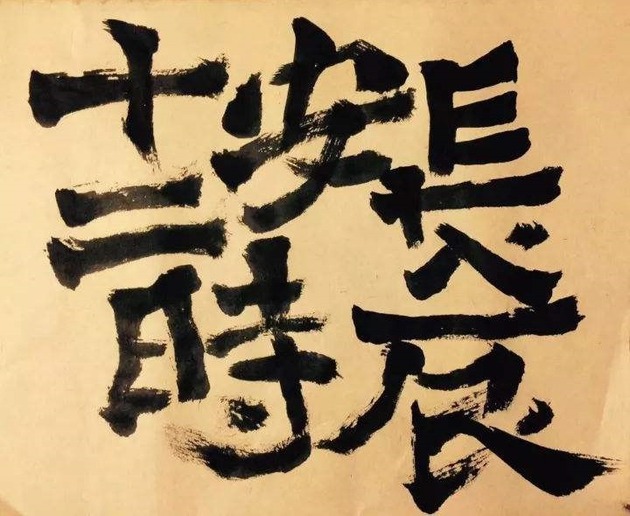 長安十二時辰